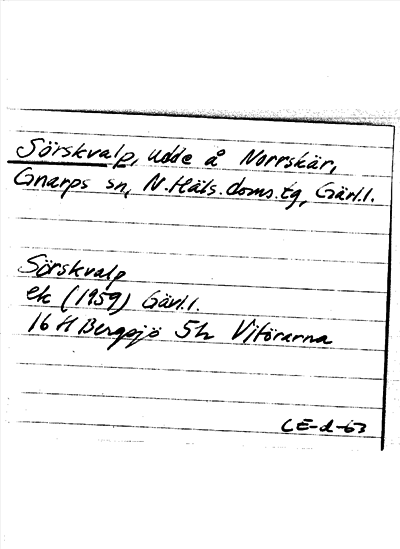 Sörskvalp, udde å Norrskär,
Gnarps sn, N. Häls. doms. tg, Gävl.l.
Sörskvalp
ek (1959) Gävl.l.
16 H Bergsjö 5h Vitörarna
CE-d-63